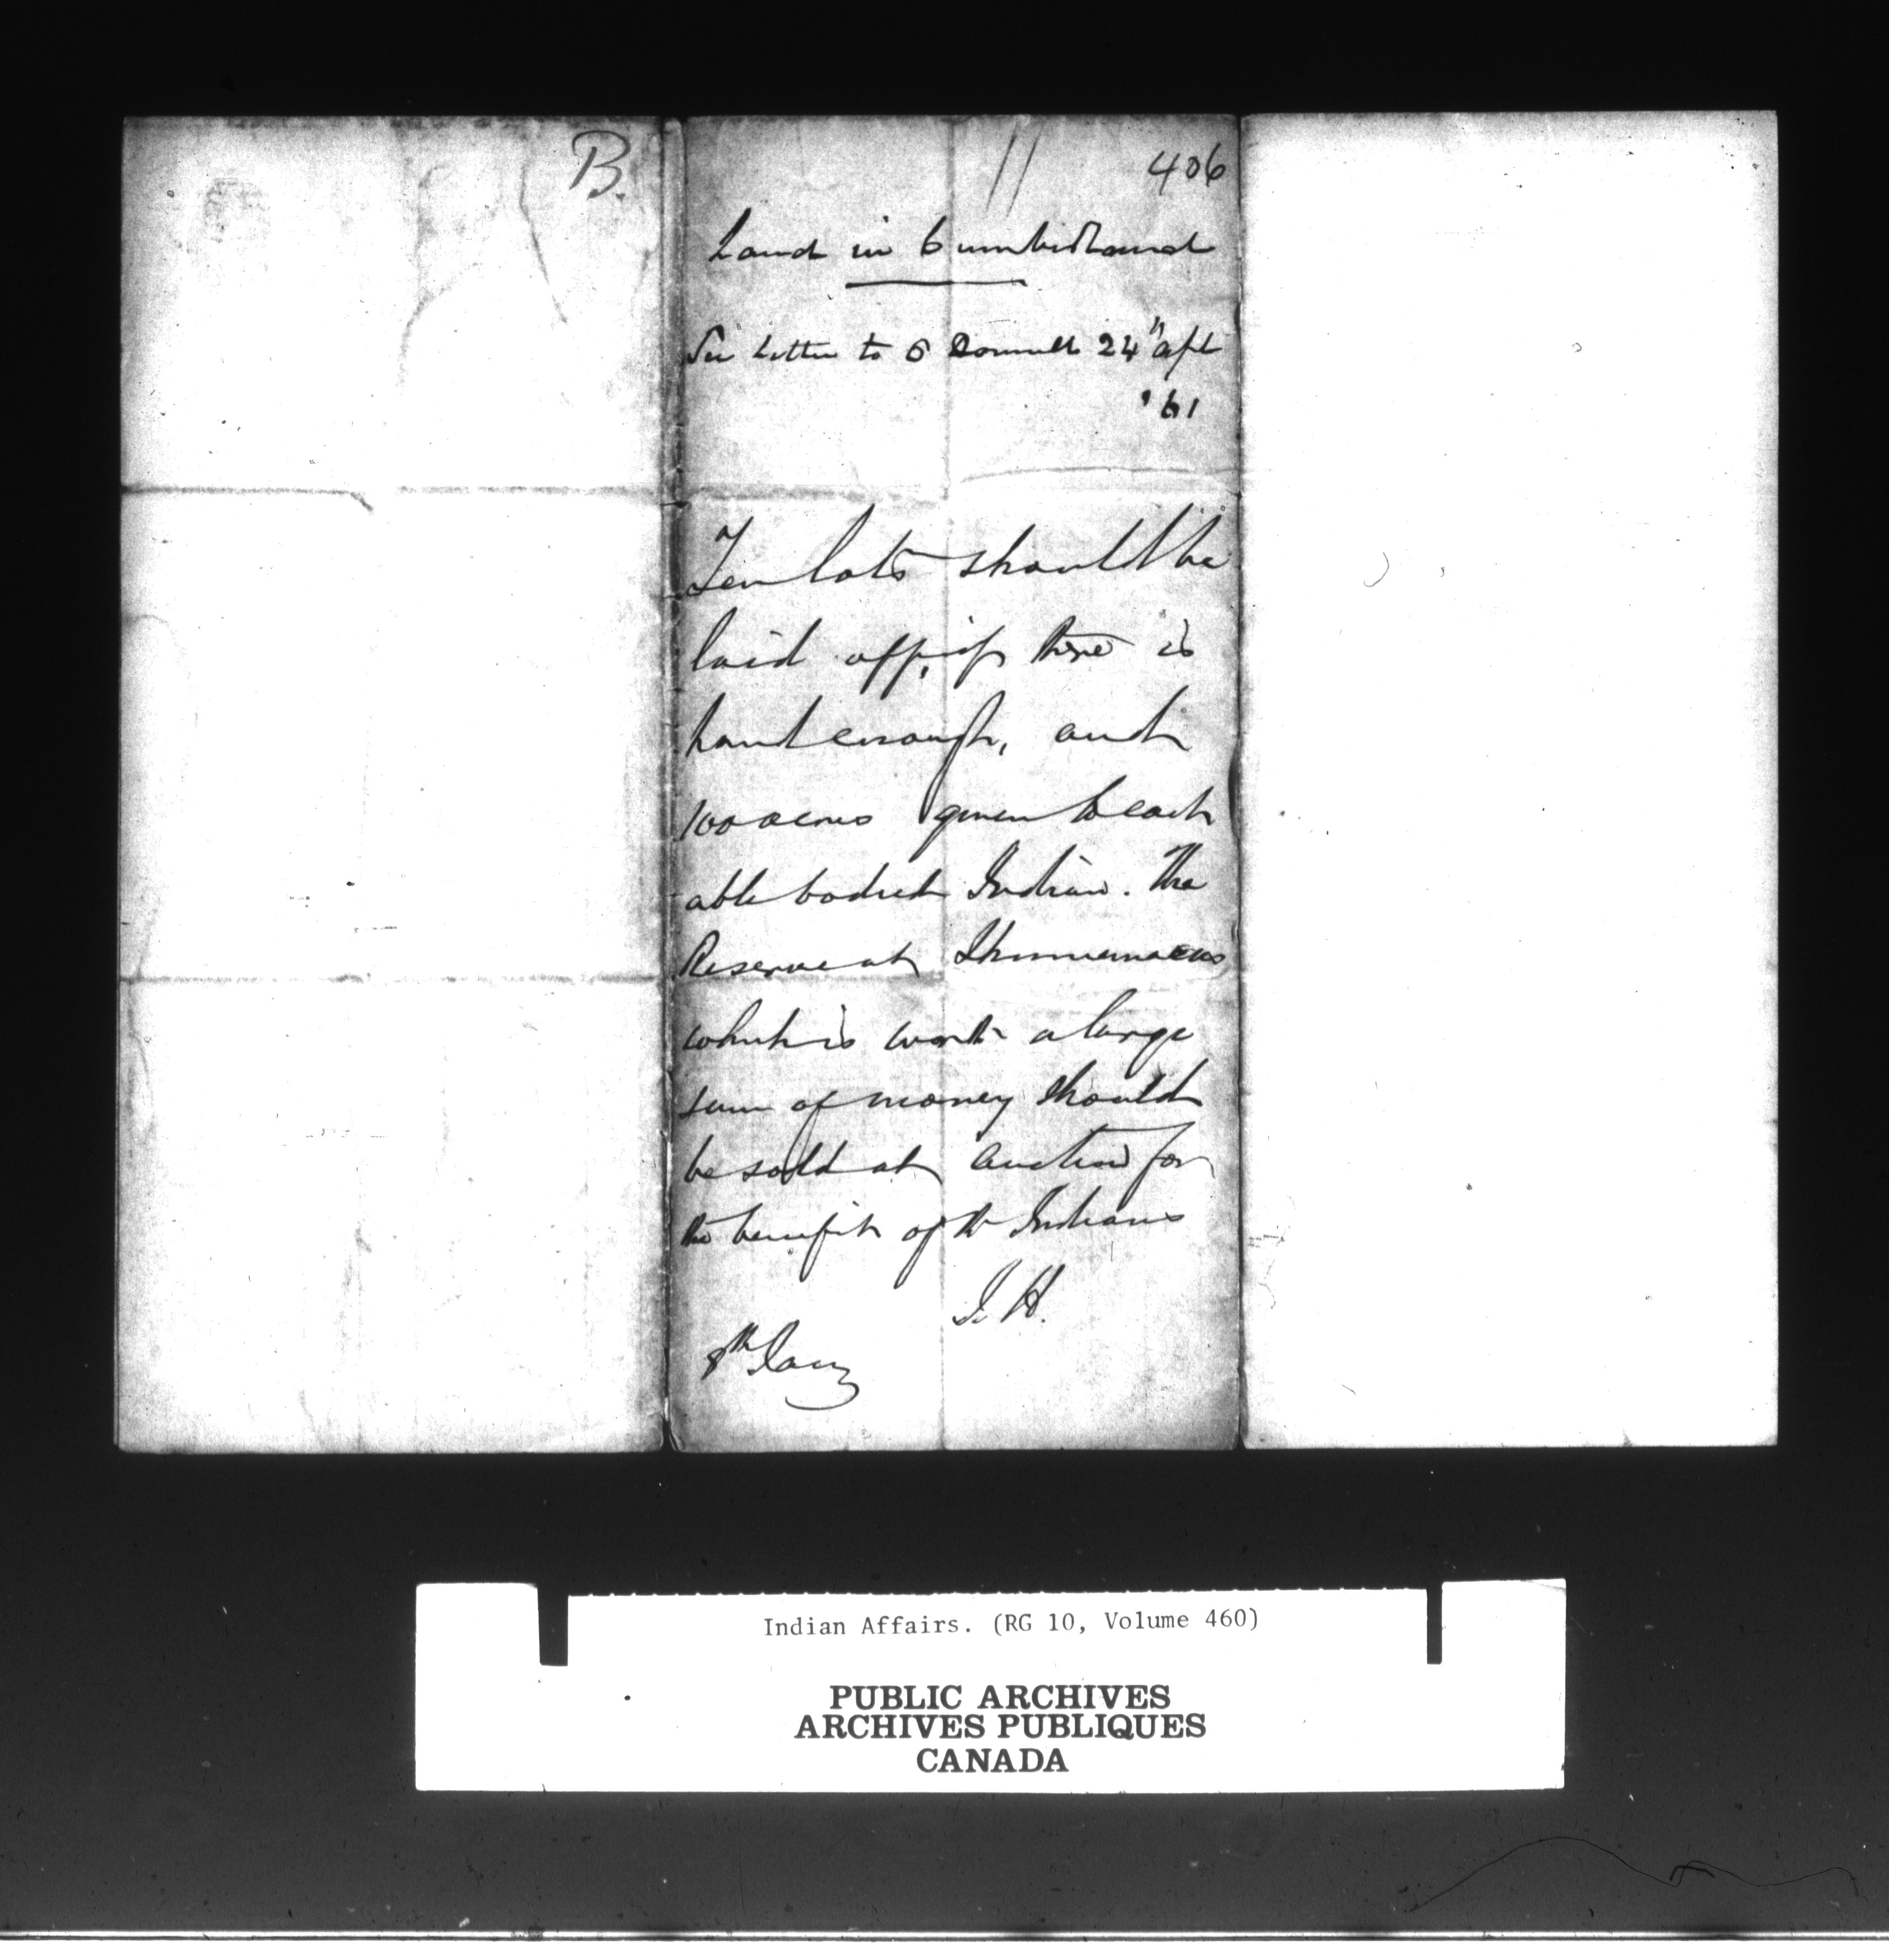 B.
11
406
Land in Cumberland
See Letter to O Donnell 24" Apl
'61
Ten lots should be
laid off, if there is
land enough, and
100 acres given to each
able bodied Indian. The
Reserve at
which is worth a large
sum of money should
be sold at auction for
the benefit of the Indians
J. H.
8th Jany
Indian Affairs. (RG 10, Volume 460)
PUBLIC ARCHIVES
ARCHIVES PUBLIQUES
CANADA